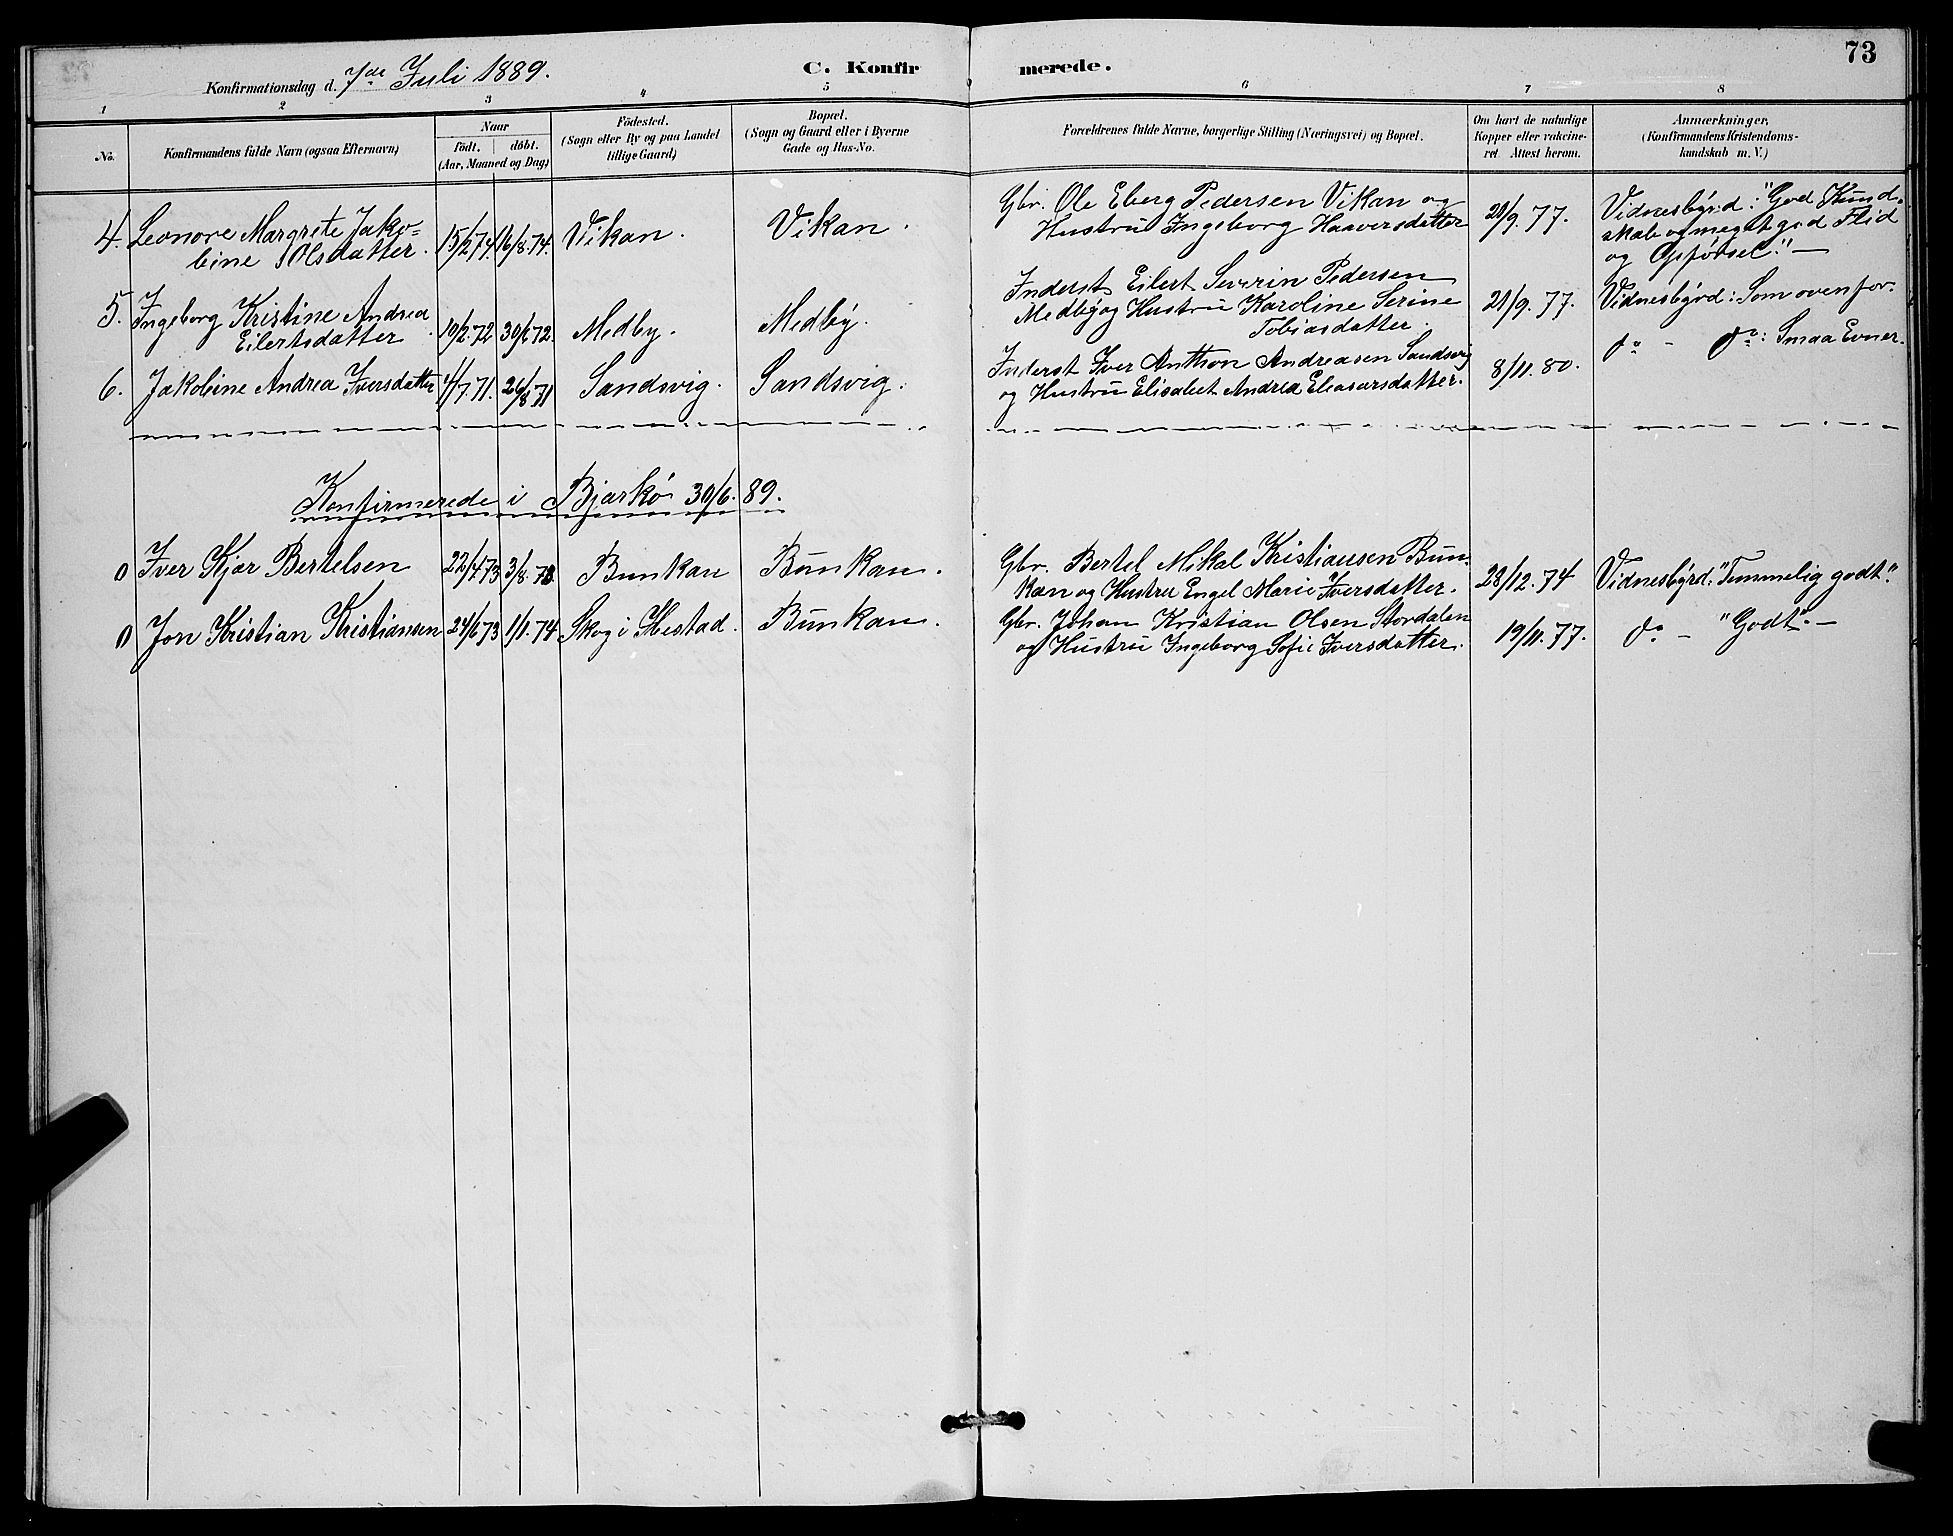 73
Konfirmationsdag d. 7de Juli 1889.
C. Konfirmerede.
1 2 3 4 5 6 7 8
No.
Konfirmandens fulde Navn (ogsaa Efternavn)
Naar
födt. döbt.
(Aar, Maaned og Dag)
Födested.
(Sogn eller By og paa Landet
tillige Gaard)
Bopæl.
(Sogn og Gaard eller i Byerne
Gade og Hus-No.
Forældrenes fulde Navne, borgerlige Stilling (Næringsvei) og Bopæl.
Om havt de naturlige
Kopper eller vakcine-
ret Attest herom.
Anmærkninger,
(Konfirmandens Kristendoms-
kundskab m. V.)
4. Leonore Margrete Jako=
bine Olsdatter. 15/2 74 16/8. 74. Vikan. Vikan.
Gbr. Ole Eberg Pedersen Vikan og
Hustru Ingeborg Haaversdatter
20/9. 77.
Vidnesbyrd: "God Kund-
skab og meget god Flid
og Opförsel." —
5. Ingeborg Kristine Andrea
Eilertsdatter. 19/2. 72 30/6 72. Medby. Medby.
Inderst Eilert Severin Pedersen
Medby og Hustru Karoline Serine
Tobiasdatter.
21/9. 77.
Vidnesbyrd: Som ovenfor.
6. Jakobine Andrea Iversdatter 4/7. 71. 26/8 71 Sandsvig. Sandsvig.
Inderst Iver Anthon Andreasen Sandsvig
og Hustru Elisabet Andrea Eleasarsdatter.
8/11. 80.
do - do: Smaa Evner.
Konfirmerede i Bjarkö 30/6. 89.
0 Iver Kjær Bertelsen 22/4 73 3/8. 73. Bunkan Bunkan.
Gbr. Bertel Mikal Kristiansen Bun-
kan og Hustru Engel Marie Iversdatter.
28/12. 74
Vidnesbyrd: "Temmelig godt."
0 Jon Kristian Kristiansen 24/6 73 1/1. 74 Skog i Ibestad. Bunkan.
Gbr. Johan Kristian Olsen Stordalen
og Hustru Ingeborg Sofie Iversdatter.
19/11. 77.
do - "Godt". —